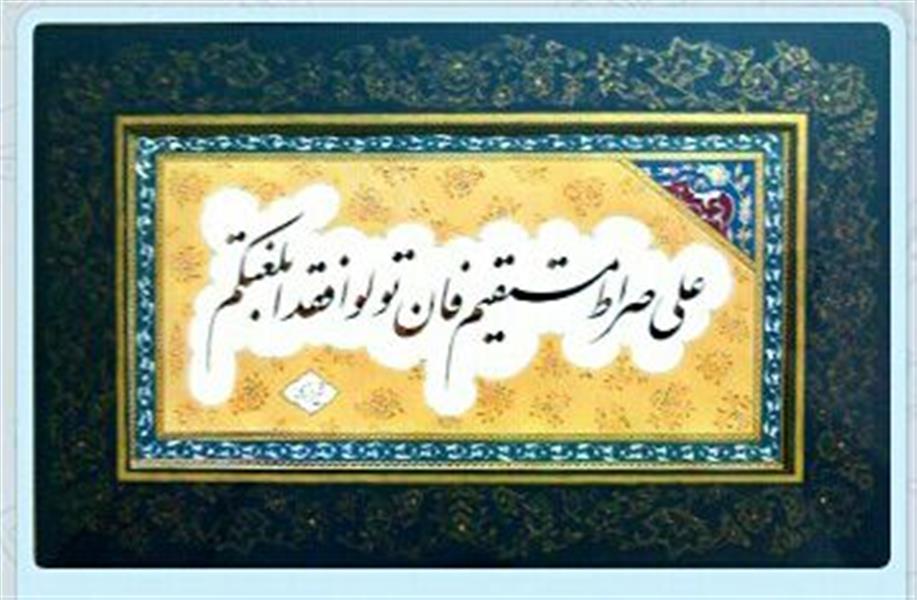 علی صراط مستقیم فان تولوا فقد ابلغتکم